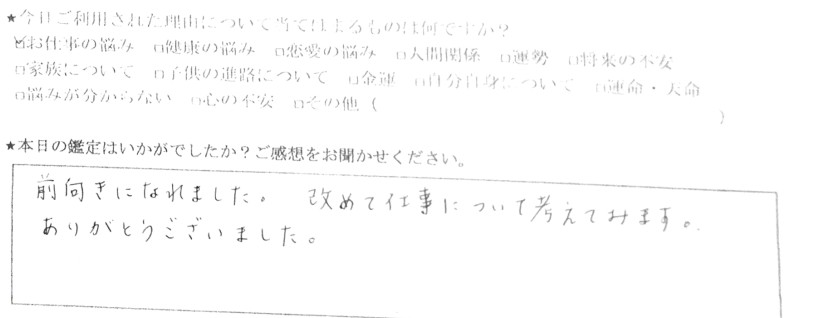 ★今日ご利用された理由について当てはまるものは何ですか？
☑お仕事の悩み □健康の悩み □恋愛の悩み □人間関係 □運勢 □将来の不安
□家族について □子供の進路について □金運 □自分自身について □運命・天命
□悩みが分からない □心の不安 □その他（ ）
★本日の鑑定はいかがでしたか？ご感想をお聞かせください。
前向きになれました。 改めて仕事について考えてみます。
ありがとうございました。